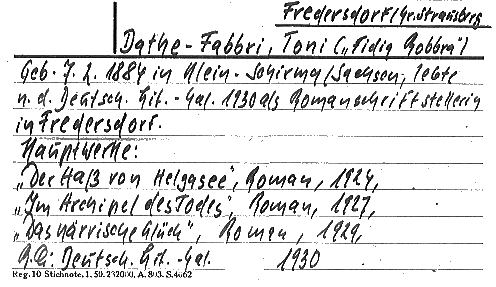 Fredersdorf/Kr. Strausberg
Dathe-Fabbri, Toni („Fidig Robbra")
Geb. 7. 2. 1884 in Klein-Schirma/Sachsen, lebte
n. d. Deutsch. Lit.-Kal. 1930 als Romanschriftstellerin
in Fredersdorf.
Hauptwerke:
„Der Haß von Helgasee", Roman, 1924,
„Im Archipel des Todes", Roman, 1927,
„Das närrische Glück", Roman, 1929,
Q.: Deutsch. Lit.-Kal. 1930
Reg. 10 Stichnote, 1. 50. 232000, A. 803. S.